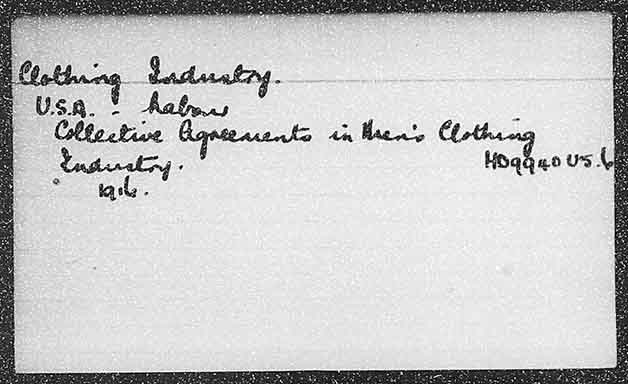 Clothing Industry.
U.S.A. - Labour
Collective Agreements in Men's Clothing
Industry. HD9940 US.6
1916.